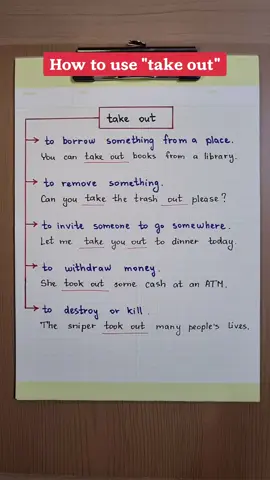 How to use "take out"
take out
to borrow something from a place.
You can take out books from a library.
to remove something.
Can you take the trash out please?
to invite someone to go somewhere.
Let me take you out to dinner today.
to withdraw money.
She took out some cash at an ATM.
to destroy or kill.
The sniper took out many people's lives.